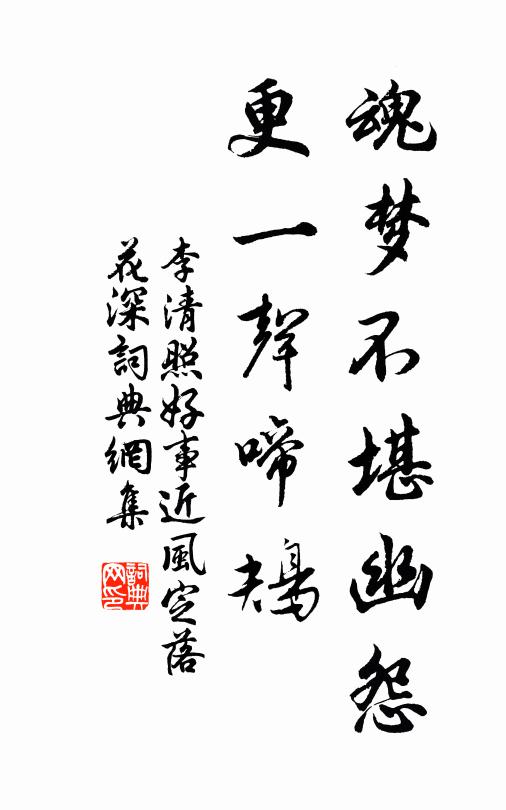 魂梦不堪幽怨
更一聲啼鴂
李清照好事近風定落
花深詞典網集
詞典
网印